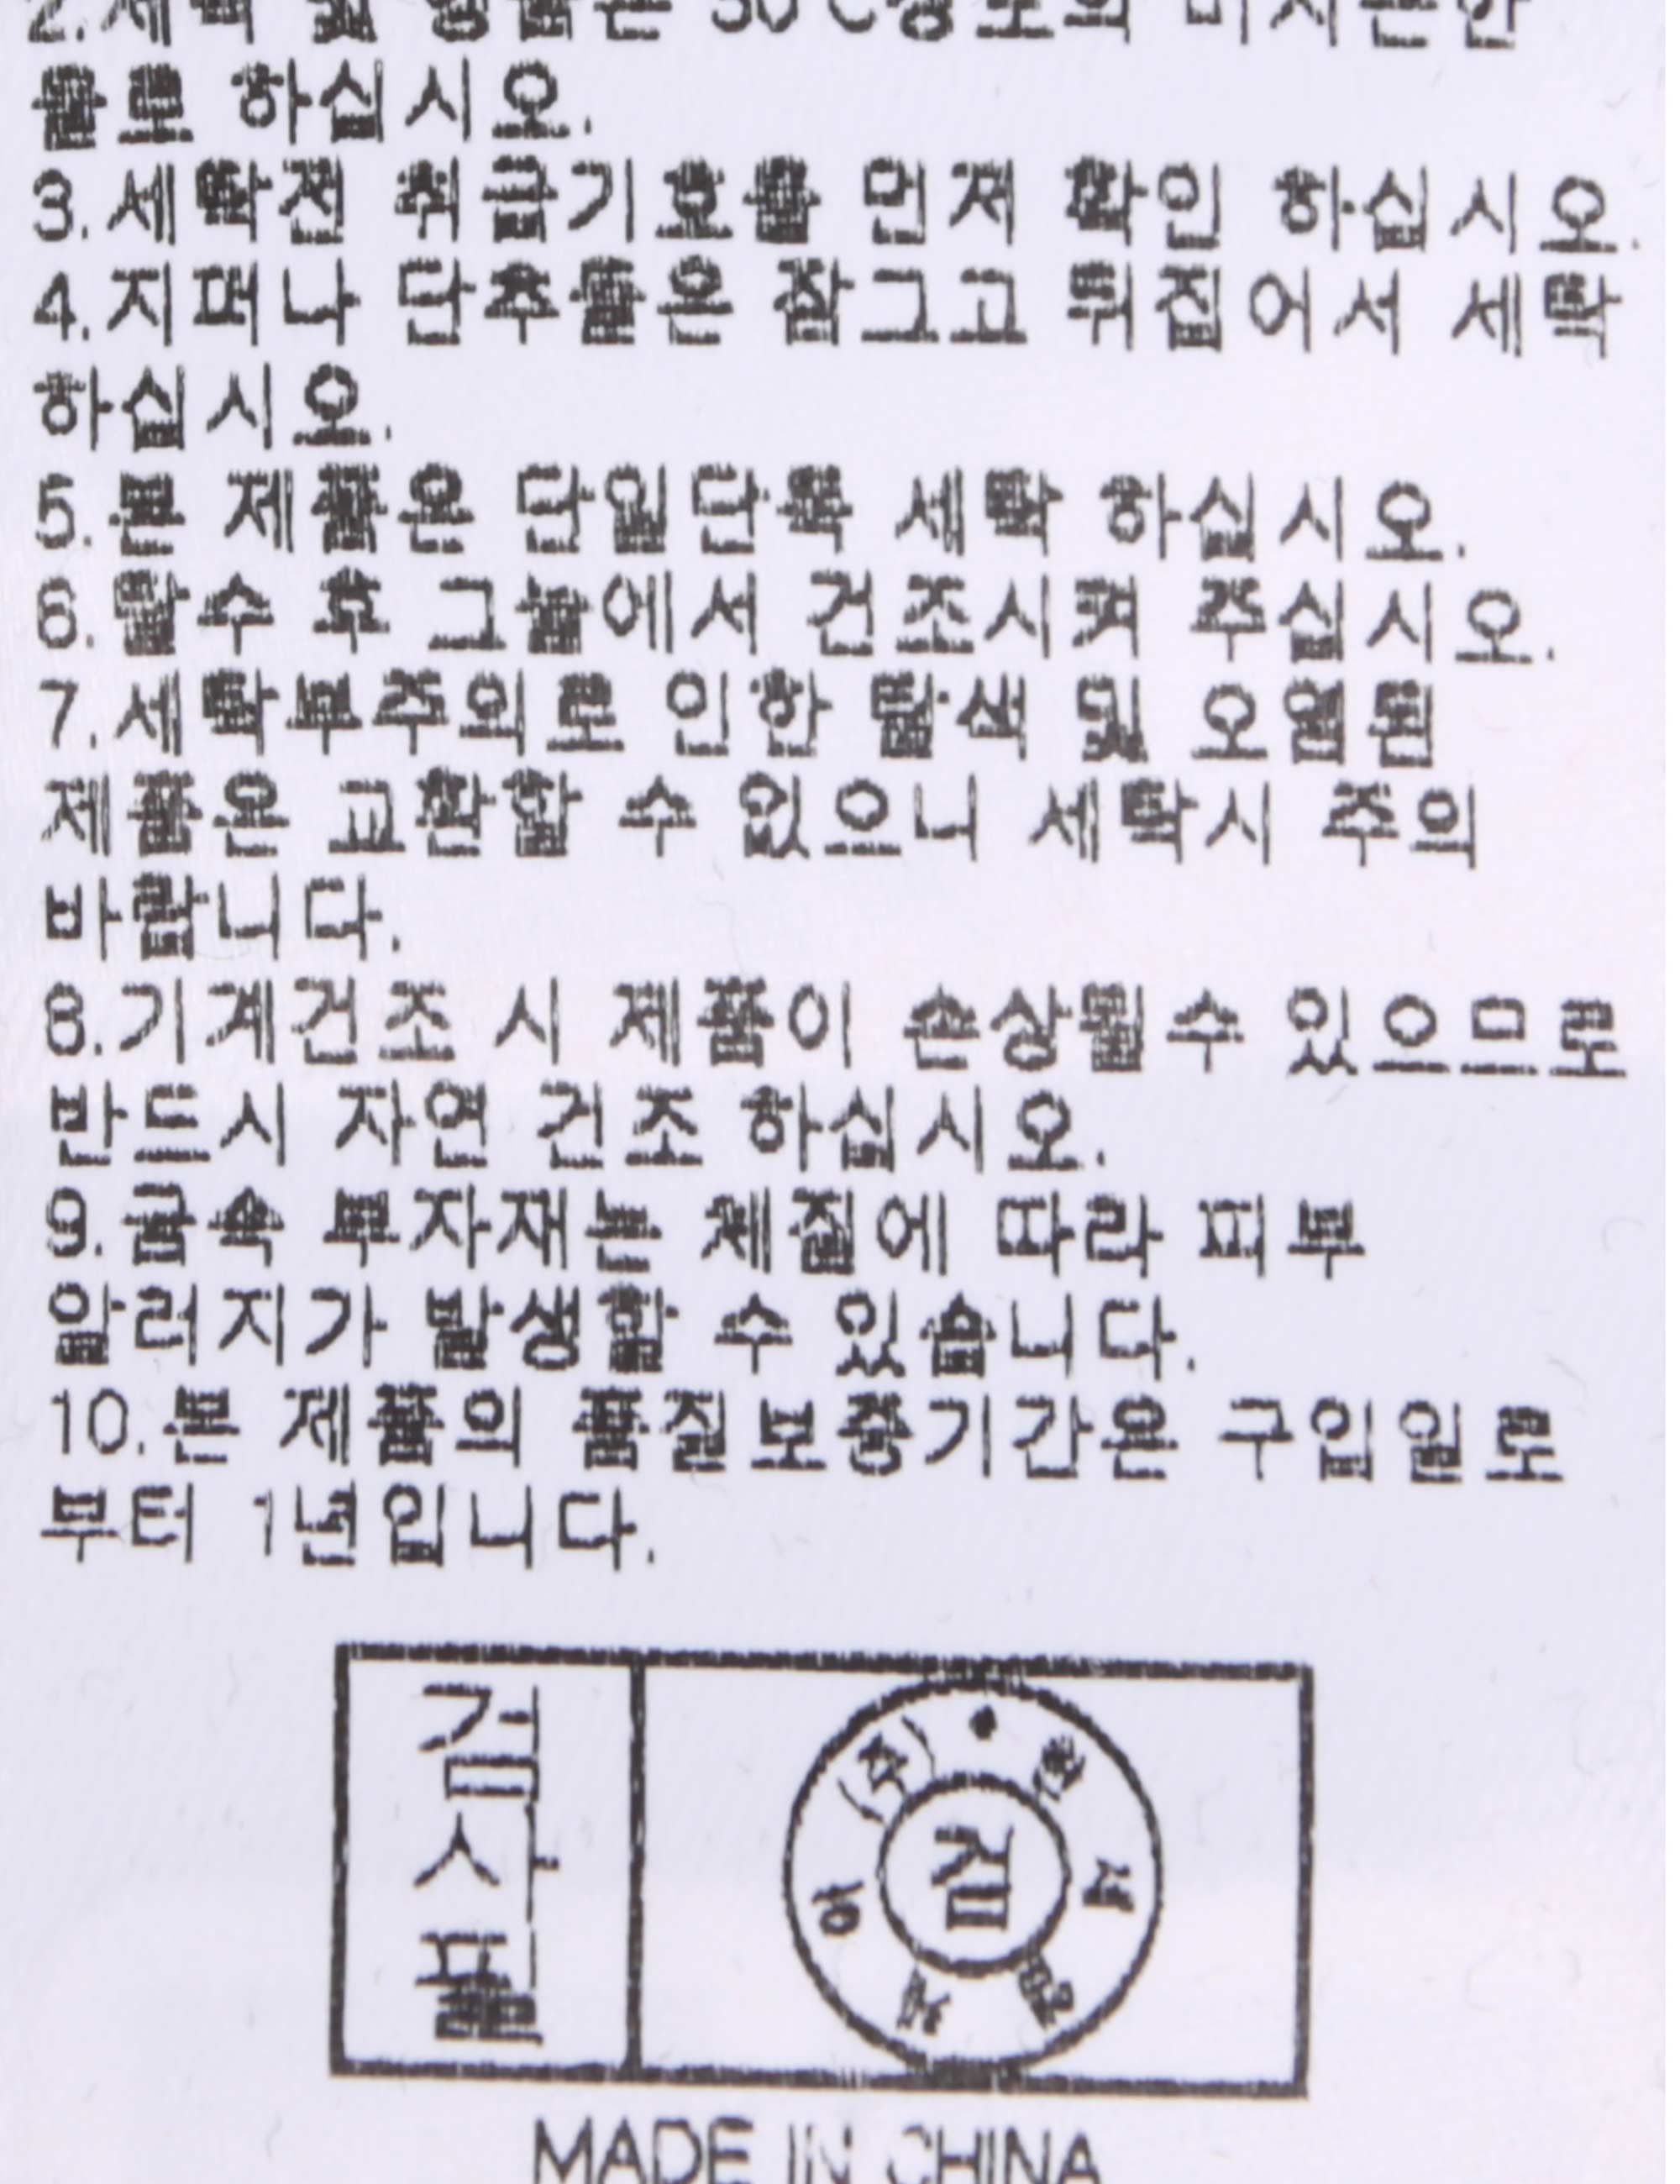 2.세탁 및 헹굼은 30℃정도의 미지근한
물로 하십시오.
3.세탁전 취급기호를 먼저 확인 하십시오.
4.지퍼나 단추들은 잠그고 뒤집어서 세탁
하십시오.
5.본 제품은 단일단독 세탁 하십시오.
6.탈수 후 그늘에서 건조시켜 주십시오.
7.세탁부주의로 인한 탈색 및 오염된
제품은 교환할 수 없으니 세탁시 주의
바랍니다.
8.기계건조 시 제품이 손상될수 있으므로
반드시 자연 건조 하십시오.
9.금속 부자재는 체질에 따라 피부
알러지가 발생할 수 있습니다.
10.본 제품의 품질보증기간은 구입일로
부터 1년입니다.
검사필
(주)
검
MADE IN CHINA